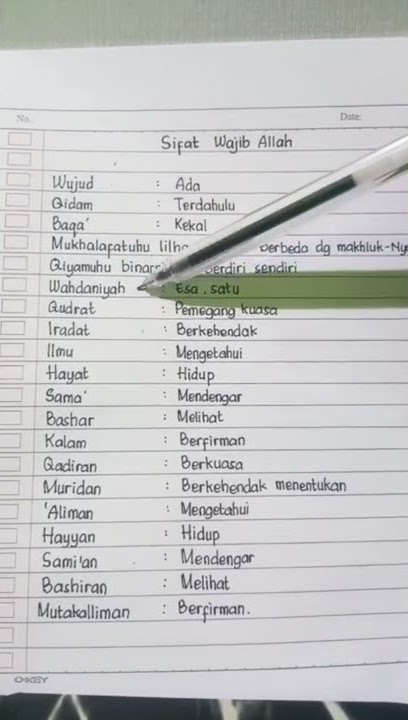 No.
Date:
Sifat Wajib Allah
Wujud : Ada
Qidam : Terdahulu
Baqa' : Kekal
Mukhalapatuhu lilha berbeda dg makhluk-Ny
Qiyamuhu binaf berdiri sendiri
Wahdaniyah : Esa . satu
Qudrat : Pemegang kuasa
Iradat : Berkehendak
Ilmu : Mengetahui
Hayat : Hidup
Sama' : Mendengar
Bashar : Melihat
Kalam : Berfirman
Qadiran : Berkuasa
Muridan : Berkehendak menentukan
'Aliman : Mengetahui
Hayyan : Hidup
Sami'an : Mendengar
Bashiran : Melihat
Mutakalliman : Berfirman.